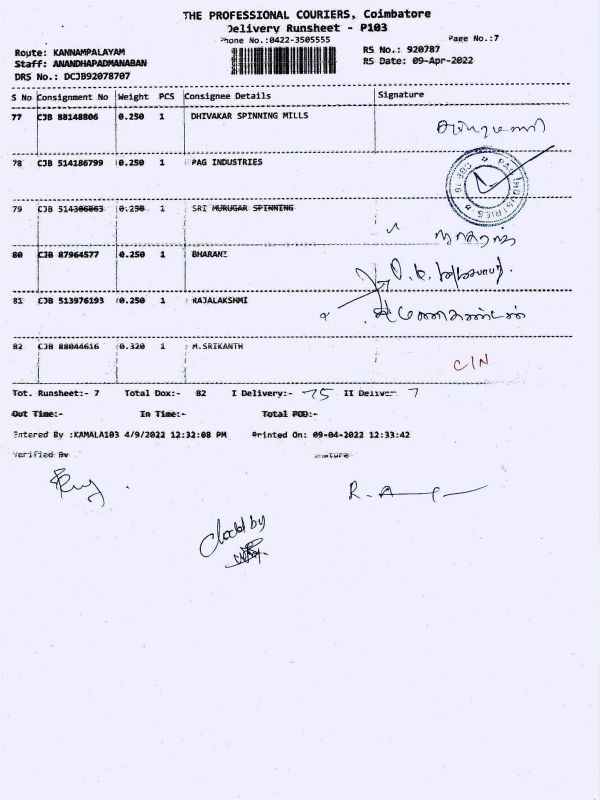 THE PROFESSIONAL COURIERS, Coimbatore
Delivery Runsheet - P103
Phone No.:0422-3505555 Page No.:7
Route: KANNAMPALAYAM RS No.: 920787
Staff: ANANDHAPADMANABAN RS Date: 09-Apr-2022
DRS No.: DCJB92078707
S No Consignment No Weight PCS Consignee Details Signature
77 CJB 88148806 0.250 1 DHIVAKAR SPINNING MILLS
78 CJB 514186799 0.250 1 PAG INDUSTRIES
PAG INDUSTRIES CBE 16
79 CJB 514306863 0.250 1 SRI MURUGAR SPINNING
80 CJB 87964577 0.250 1 BHARANI
81 CJB 513976193 0.250 1 RAJALAKSHMI
82 CJB 88044616 0.320 1 M.SRIKANTH C/N
Tot. Runsheet:- 7 Total Dox:- 82 I Delivery:- 75 II Deliver 7
Out Time:- In Time:- Total POD:-
Entered By :KAMALA103 4/9/2022 12:32:08 PM Printed On: 09-04-2022 12:33:42
Verified By